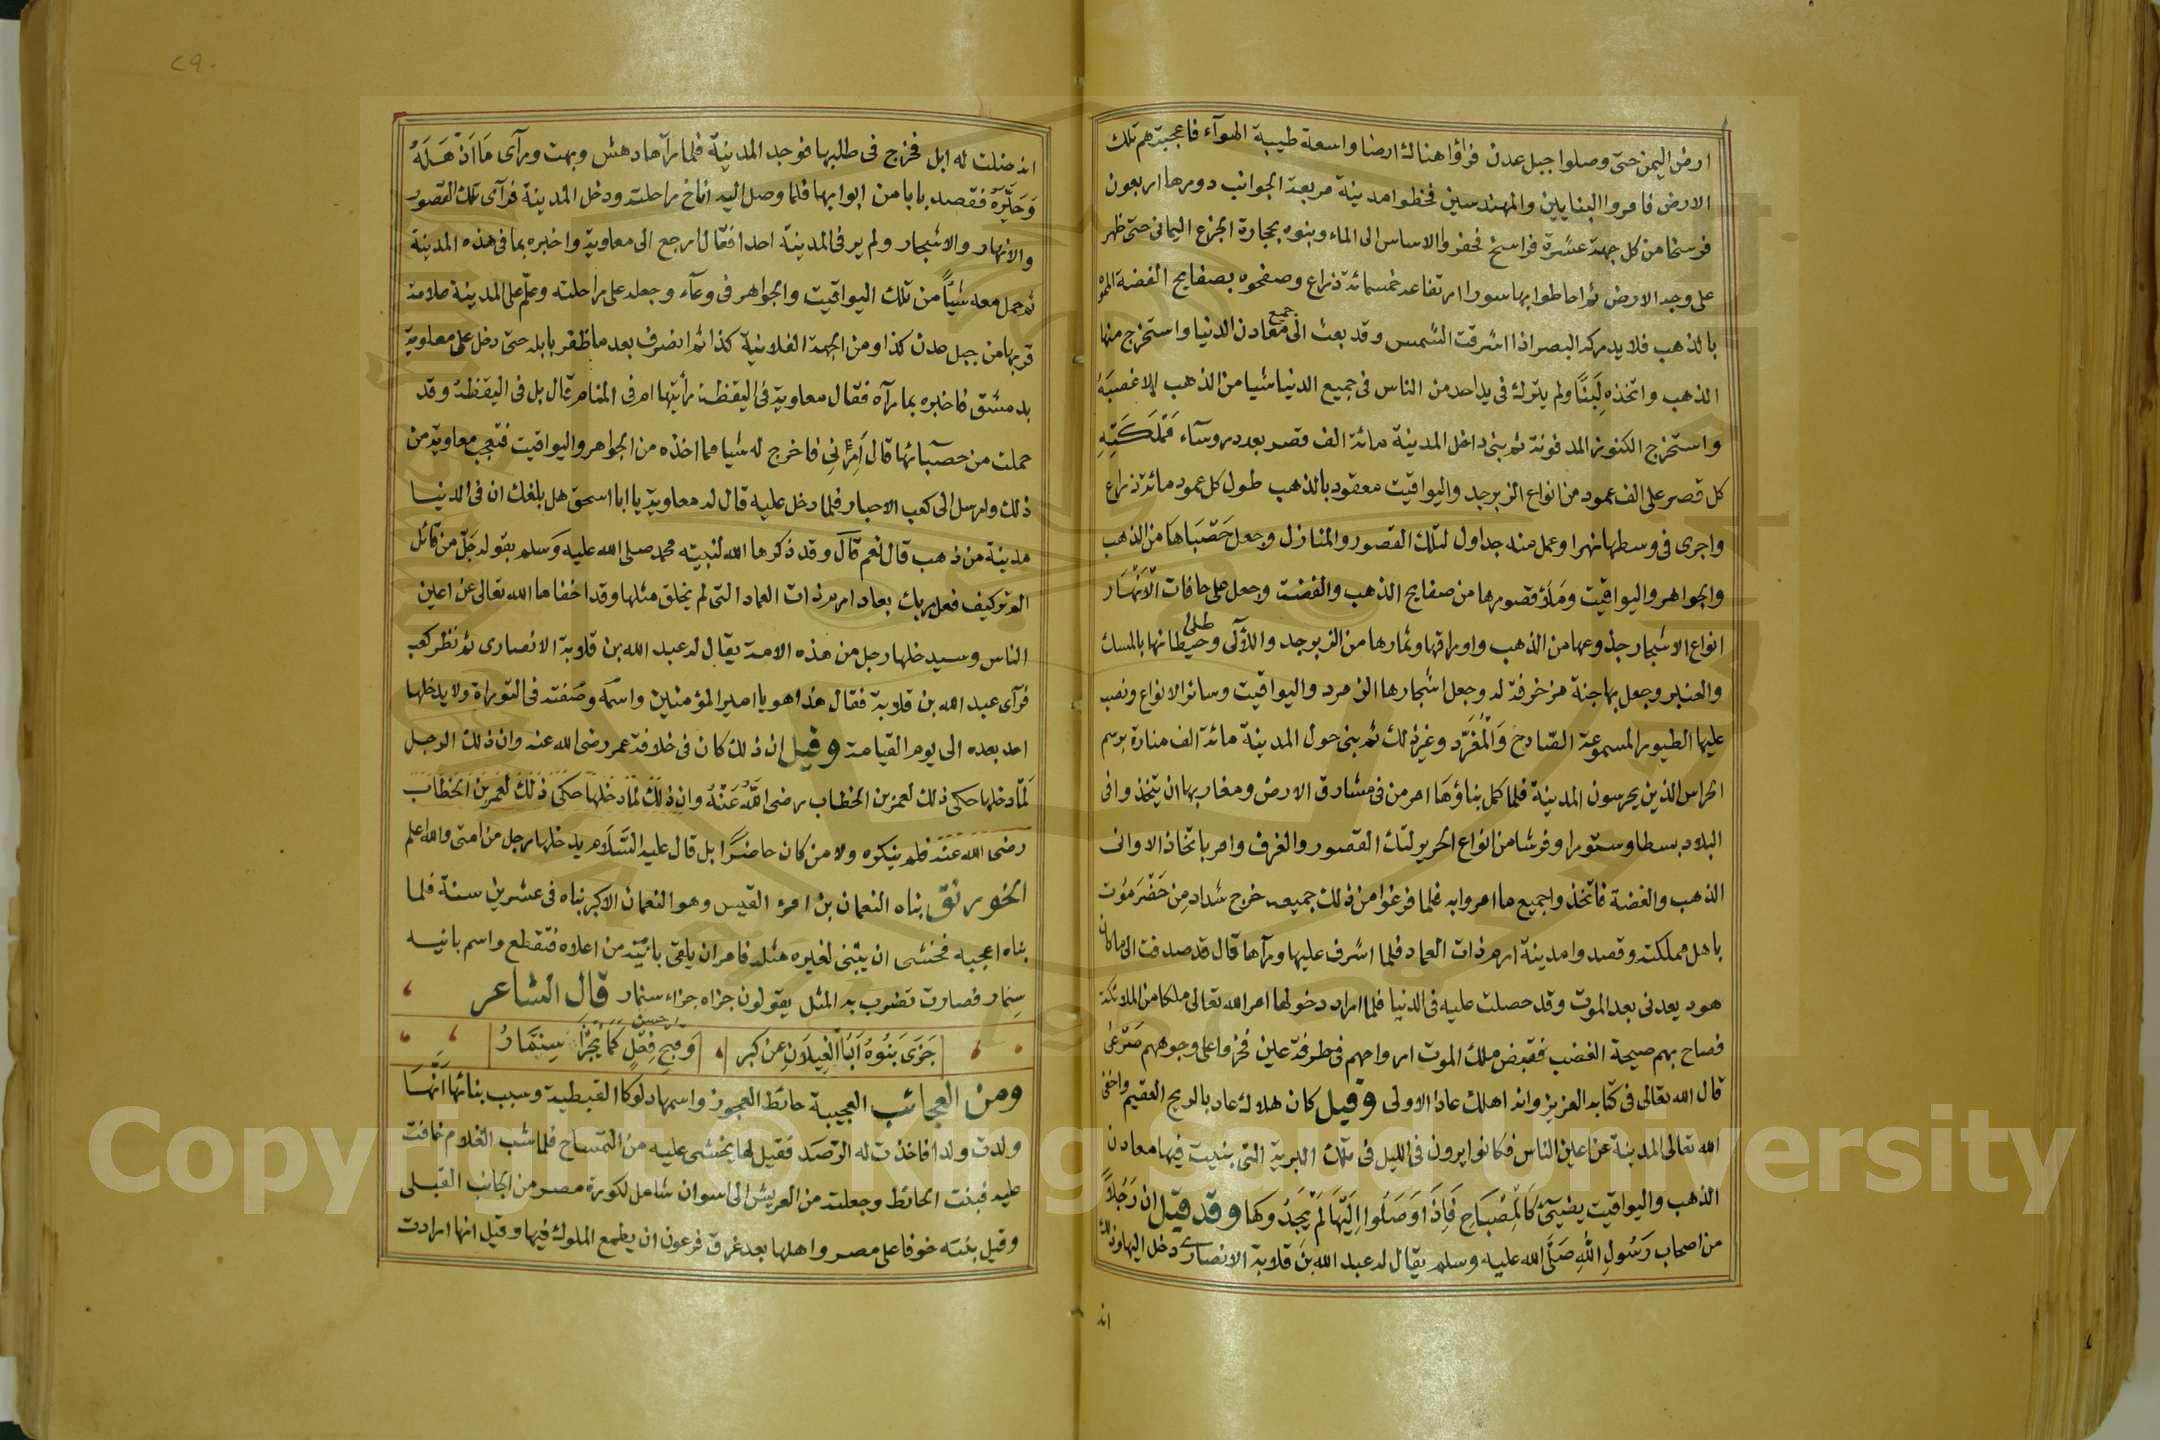 ارض اليمن حتى وصلوا جبل عدن فراؤا هناك ارضا واسعة طيبة الهوآء فاعجبتهم تلك
الارض فامروا البنايين والمهندسين فخطوا مدينة مربعة الجوانب دورها اربعون
فرسخا من كل جهة عشرة فراسخ فحفروا الاساس الى الماء وبنوه بحجارة الجزع اليمانى حتى ظهر
على وجه الارض ثم احاطوا بها سورا ارتفاعه خمسمائة ذراع وصفحوه بصفايح الفضة المموه
بالذهب فلا يدركه البصر اذا اشرقت الشمس وقد بعث الى جميع معادن الدنيا واستخرج منها
الذهب واتخذه لَبِنًا ولم يترك فى يد احد من الناس فى جميع الدنيا شيا من الذهب الا غصبَهُ
واستخرج الكنوز المدفونة ثم بنى داخل المدينة مائة الف قصر بعدد روسآء مَمْلَكَتِهِ
كل قصر على الف عمود من انواع الزبرجد واليواقيت معقود بالذهب طول كل عمود مائة ذراع
واجرى فى وسطها نهرا وعمل منه جداول لتلك القصور والمنازل وجعل حَصْبَاهَا من الذهب
والجواهر واليواقيت وَمَلَأَ قصورها من صفايح الذهب والفضة وجعل على حافات الْاَنْهَار
انواع الاشجار جذوعها من الذهب واوراقها وثمارها من الزبرجد واللآلى وطلى حيطانها بالمسك
والعنبر وجعل بها جنة مزخرفة له وجعل اشجارها الزمرد واليواقيت وسائر الانواع ونصب
عليها الطيور المسموعة الصّادح وَالْمُغَرِّد وغير ذلك ثم بنى حول المدينة مائة الف منارة برسم
الحراس الذين يحرسون المدينة فلما كمل بناؤهَا امر من فى مشارق الارض ومغاربها ان يتخذوا فى
البلاد بسطا وستورا وفرشا من انواع الحرير لتلك القصور والغرف وامر باتخاذ الاوانى
الذهب والفضة فاتخذوا جميع ما امروا به فلما فرغوا من ذلك جميعه خرج شداد من حَضْرَمَوْت
باهل مملكته وقصدوا مدينة ارم ذات العماد فلما اشرف عليها ورآها قال قد صدقت الى ما كان
هود يعدنى بعد الموت وقد حصلت عليه فى الدنيا فلما اراد دخولها امر الله تعالى ملكا من الملائكة
فصاح بهم صيحة الغضب فقبض ملك الموت ارواحهم فى طرفة عين فخروا على وجوههم صَرْعَى
قال الله تعالى فى كتابه العزيز وانه اهلك عادا الاولى وقيل كان هلاك عاد بالريح العقيم واخفى
الله تعالى المدينة عن اعين الناس فكانوا يرون فى الليل فى تلك البرية التى بنيت فيها معادن
الذهب واليواقيت يضيئ كَالْمِصْبَاحِ فَاِذَا وَصَلُوا اِلَيْهَا لَمْ يَجِدُوهَا وقد قيل ان رَجُلاً
من اصحاب رَسُولِ اللهِ صَلَّى الله عليه وسلم يقال له عبد الله بن قلابة الانصارى دخل اليها وذلك
انه
٢٩٠
انه ضلت له ابل فخرج فى طلبها فوجد المدينة فلما رآها دهش وبهت ورآى مَا اَذْهَلَهُ
وَحَيَّرَهُ فقصد بابا من ابوابها فلما وصل اليه اناخ راحلته ودخل المدينة فرآى تلك القصور
والانهار والاشجار ولم ير فى المدينة احدا فقال ارجع الى معاوية واخبره بما فى هذه المدينة
ثم حمل معه شيأ من تلك اليواقيت والجواهر فى وعآء وجعله على راحلته وعلم على المدينة علامة
قربها من جبل عدن كذا ومن الجهة الفلانية كذا ثم انصرف بعد ما ظفر بابله حتى دخل على معاوية
بدمشق فاخبره بما رآه فقال معاوية فى اليقظة رأيتها ام فى المنام قال بل فى اليقظة وقد
حملت من حصبائها قال اَرِنِى فاخرج له شيا مما اخذه من الجواهر واليواقيت فتعجب معاوية من
ذلك وارسل الى كعب الاحبار فلما دخل عليه قال له معاوية يا ابا اسحق هل بلغك ان فى الدنيا
مدينة من ذهب قال نعم قال وقد ذكرها الله لنبيه محمد صلى الله عليه وسلم بقوله جَلّ من قائل
الم تر كيف فعل ربك بعاد ارم ذات العماد التى لم يخلق مثلها وقد اخفاها الله تعالى عن اعين
الناس وسيدخلها رجل من هذه الامة يقال له عبد الله بن قلابة الانصارى ثم نظر كعب
فرآى عبد الله بن قلابة فقال هذا هو يا امير المؤمنين واسمه وصفته فى التوراة ولا يدخلها
احد بعده الى يوم القيامة وقيل ان ذلك كان فى خلافة عمر رضى الله عنه وان ذلك الرجل
لما دخلها حكى ذلك لعمر بن الخطاب رضى اللهُ عَنْهُ وان ذلك لما دخلها حكى ذلك لعمر بن الخطاب
رضى الله عنه فلم ينكره ولا من كان حاضرًا بل قال عليه السَّلَام يدخلها رجل من امتى والله اعلم
الخورنق بناه النعمان بن امرؤ القيس وهو النعمان الاكبر بناه فى عشرين سنة فلما
بناه اعجبه فخشى ان يبنى لغيره مثله فامر ان يلقى بانيه من اعلاه فتقطع واسم بانيه
سِنِمار فصارت تضرب به المثل يقولون جزاه جزاء سنمار قال الشاعر
جَزَى بَنُوهُ اَبَا الْغِيلَانِ عن كبر وحسن فِعْلٍ كَمَا يُجْزَا سِنِمَّارُ
ومن العجائب العجيبة حائط العجوز واسمها دلوكا القبطية وسبب بنائها اَنَّهَا
ولدت ولدا فاخذت له الرَّصَد فقيل لها يخشى عليه من التمساح فلما شب الغلام خافت
عليه فبنت الحائط وجعلته من العريش الى اسوان شامل لكورة مصر من الجانب القبلى
وقيل بنته خوفا على مصر واهلها بعد غرق فرعون ان يطمع الملوك فيها وقيل انها ارادت
Copyright © King Saud University